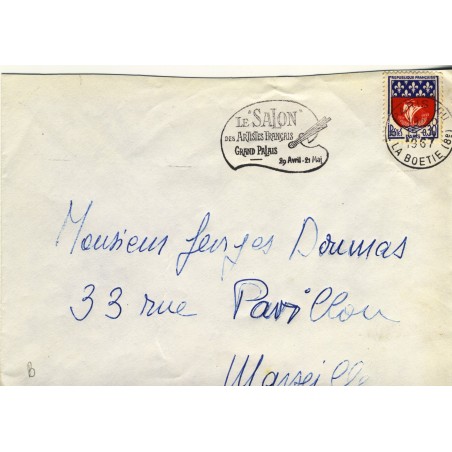 LE "SALON"
DES ARTISTES FRANÇAIS
GRAND PALAIS
29 Avril - 21 Mai
REPUBLIQUE FRANÇAISE
0,30
1967
LA BOETIE (8e)
Monsieur Georges Doumas
33 rue Pavillon
Marseille
B